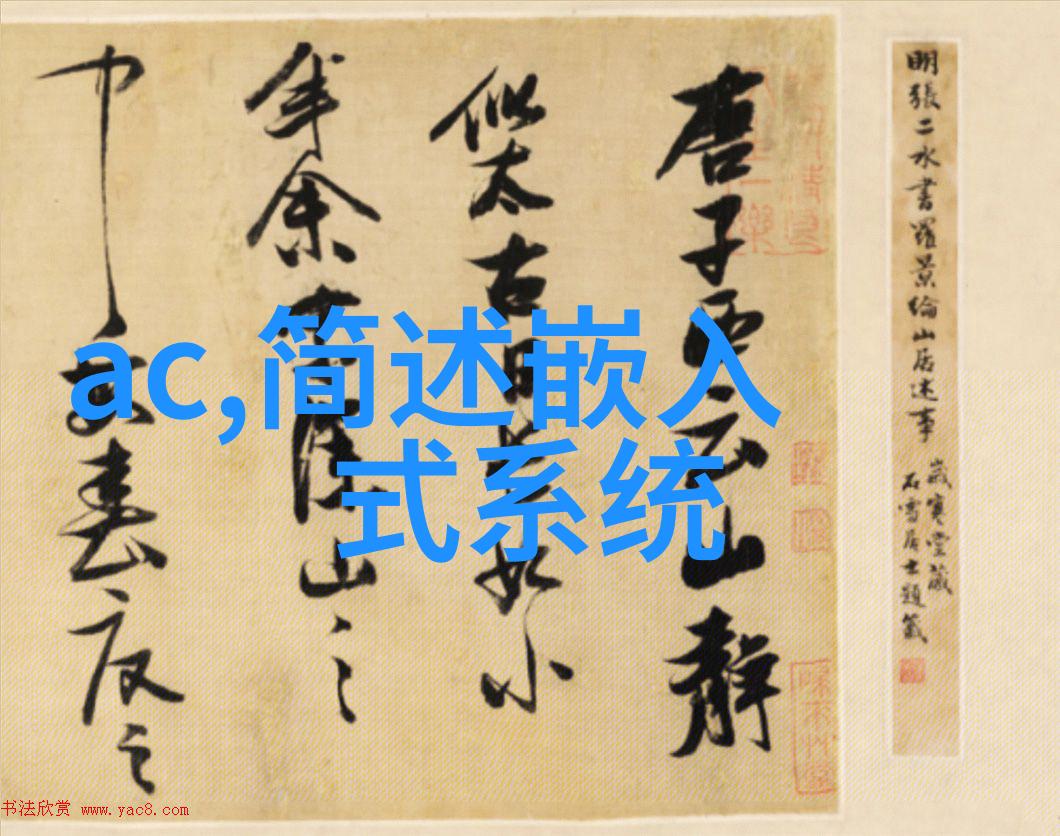 明張二水書羅景綸山居述事
歲寒堂藏
石雪居士題籤
唐子西云山靜
似太古日長如小
年余家深山之
中每春夏之
ac,简述嵌入
式系统
书法欣赏 www.yac8.com